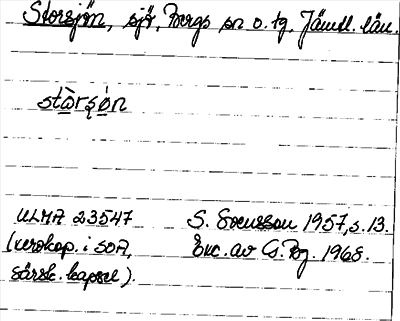 Storsjön, sjö, Bergs sn o. tg, Jämtl. län.
stàrsòn
ULMA 23547 S. Svensson 1957, s. 13.
(xeroxkop. i SOA, Exc. av G. Bg. 1968.
särsk. kapsel).